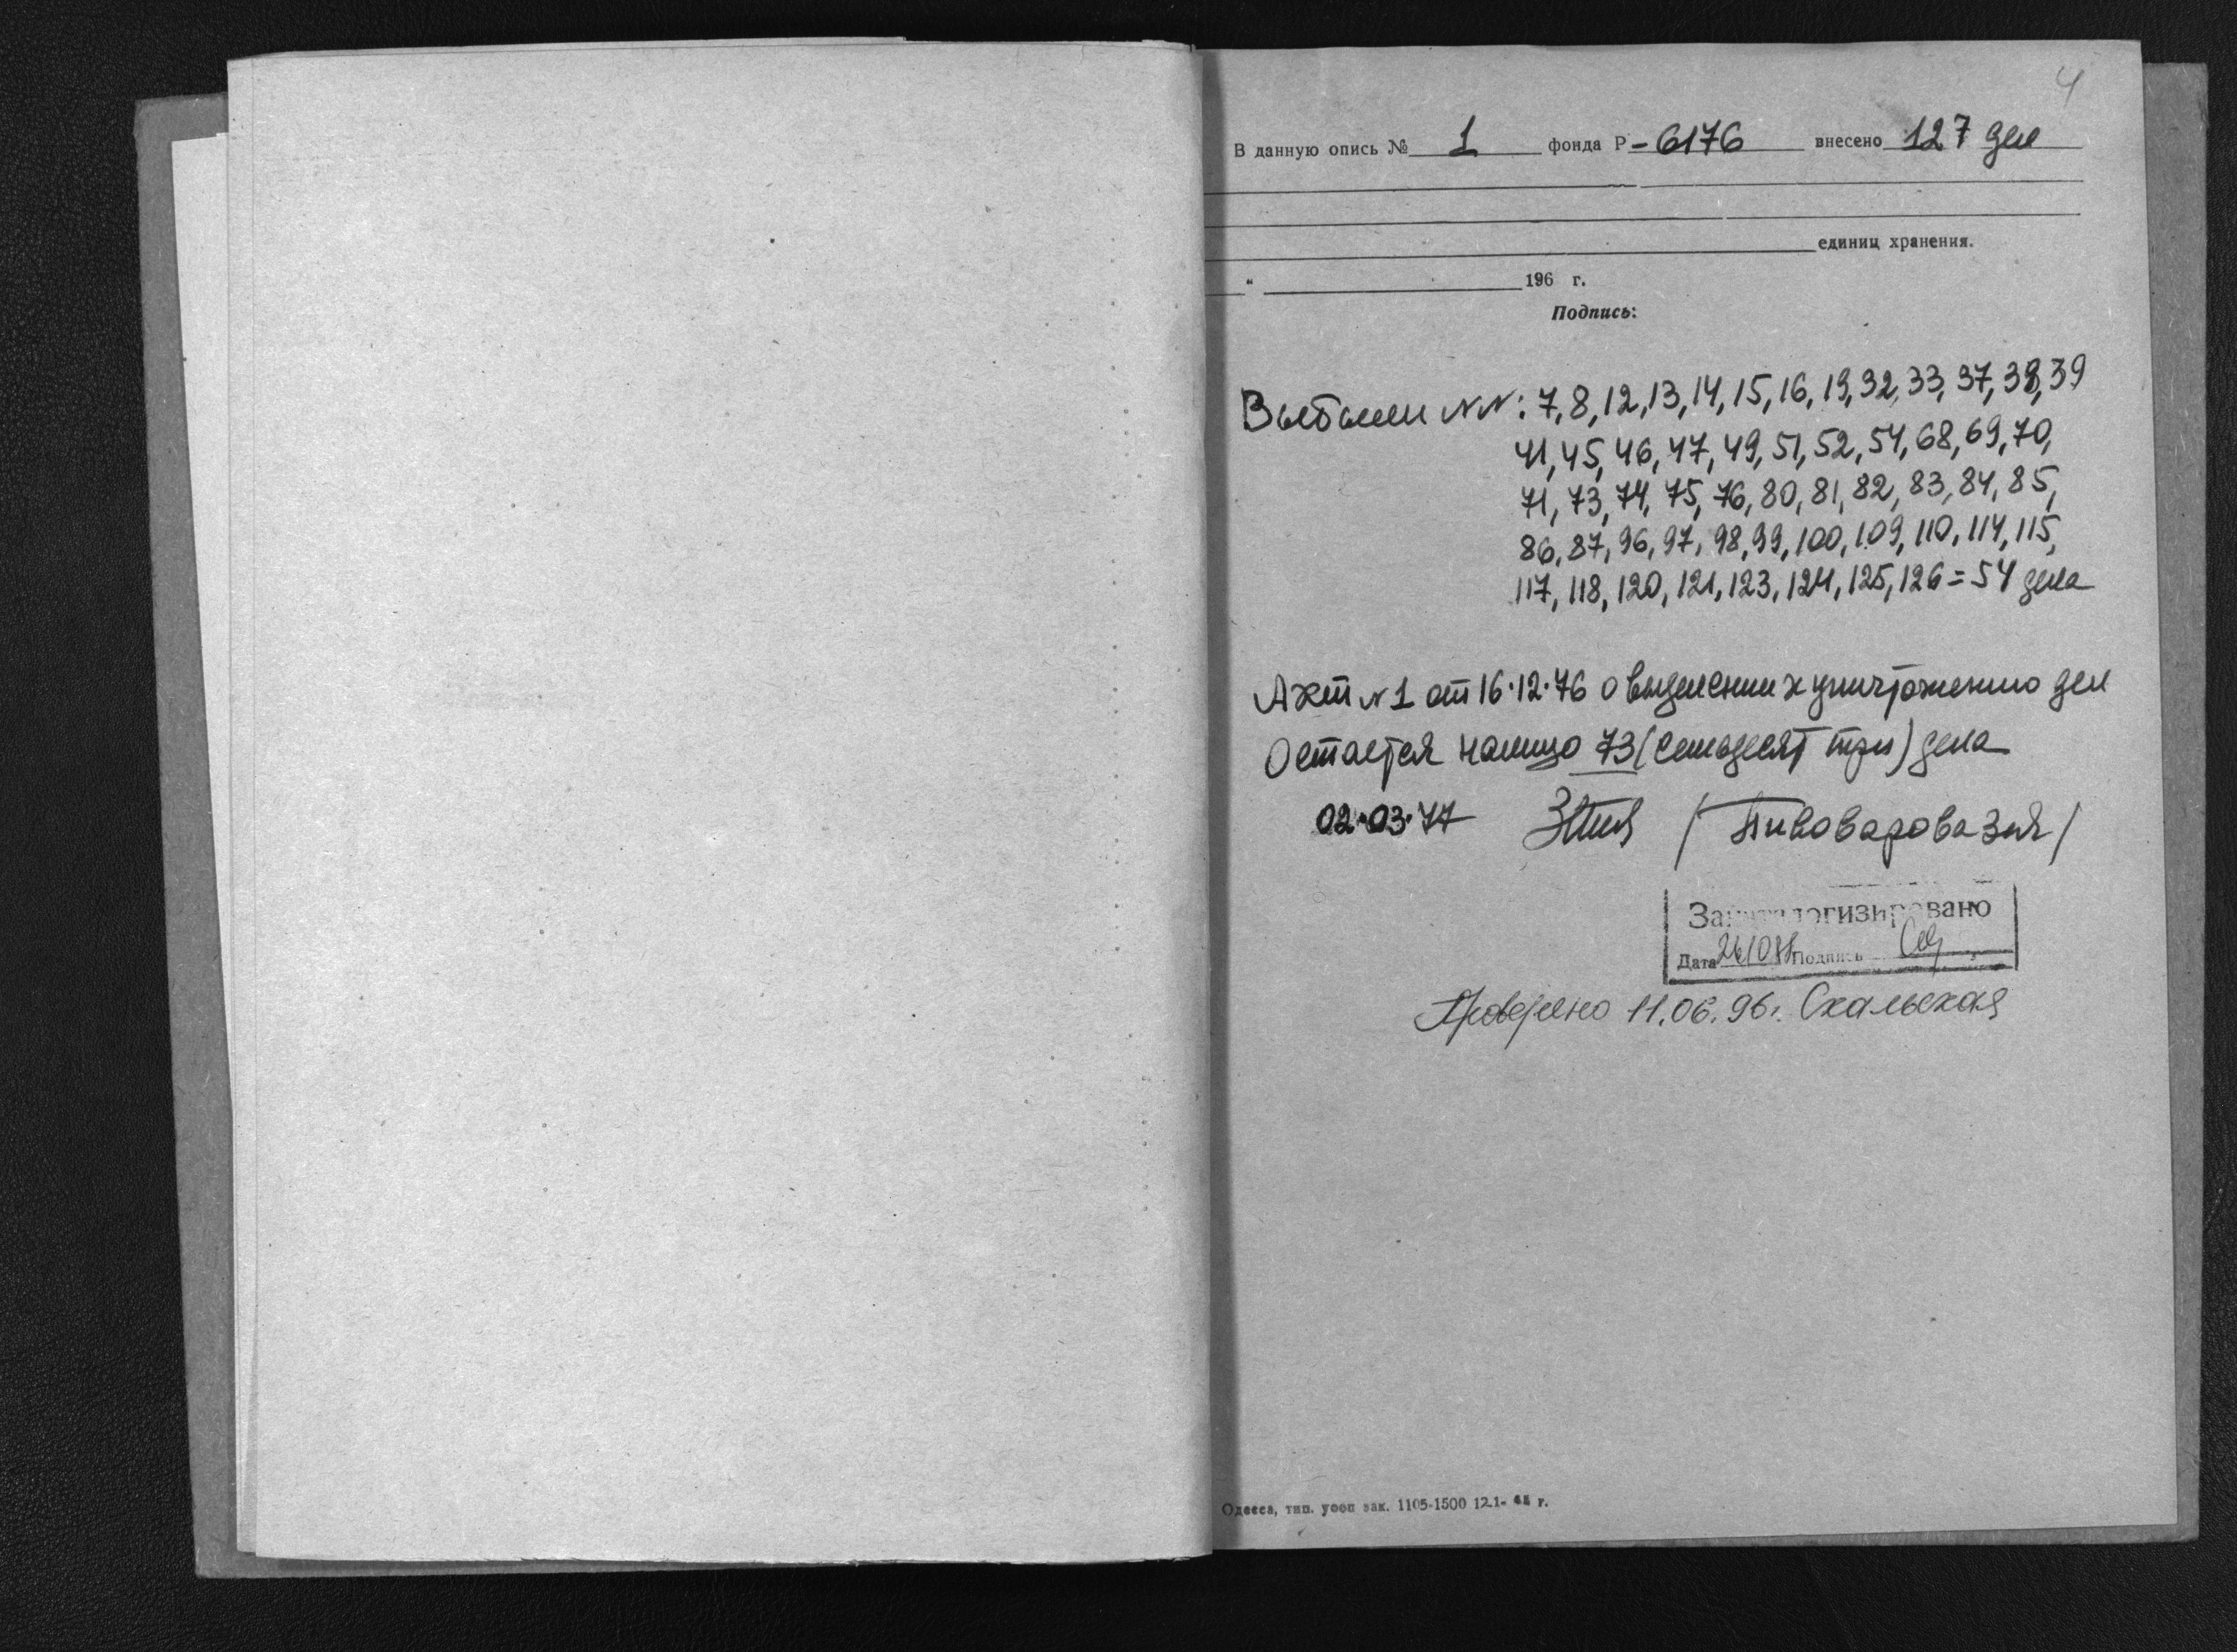 4
В данную опись № 1 фонда Р-6176 внесено 127 дел
единиц хранения.
" 196 г.
Подпись:
Выбыли NN: 7, 8, 12, 13, 14, 15, 16, 19, 32, 33, 37, 38, 39
41, 45, 46, 47, 49, 51, 52, 54, 68, 69, 70,
71, 73, 74, 75, 76, 80, 81, 82, 83, 84, 85,
86, 87, 96, 97, 98, 99, 100, 109, 110, 114, 115,
117, 118, 120, 121, 123, 124, 125, 126 = 54 дела
Акт N1 от 16.12.76 о выделении к уничтожению дел
Остается налицо 73 (семьдесят три) дела
02.03.77 / Пивоварова Зоя /
Закаталогизировано
Дата Подпись
Проверено 11.06.96г. Скальская
Одесса, тип. зак. 1105-1500 12.1- г.